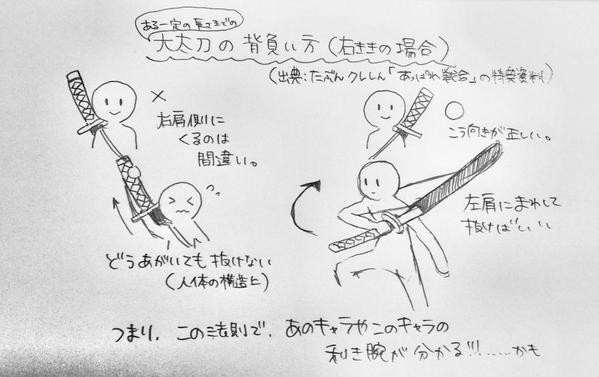 ある一定の長さまでの
大太刀の背負い方（右ききの場合）
（出典：たぶんクレしん「あっぱれ戦国」の特典資料）
×
右肩側に
くるのは
間違い。
どうあがいても抜けない
（人体の構造上）
○
こう向きが正しい。
左肩にまわして
抜けばいい
つまり、この法則で、あのキャラやこのキャラの
利き腕が分かる!!!……かも